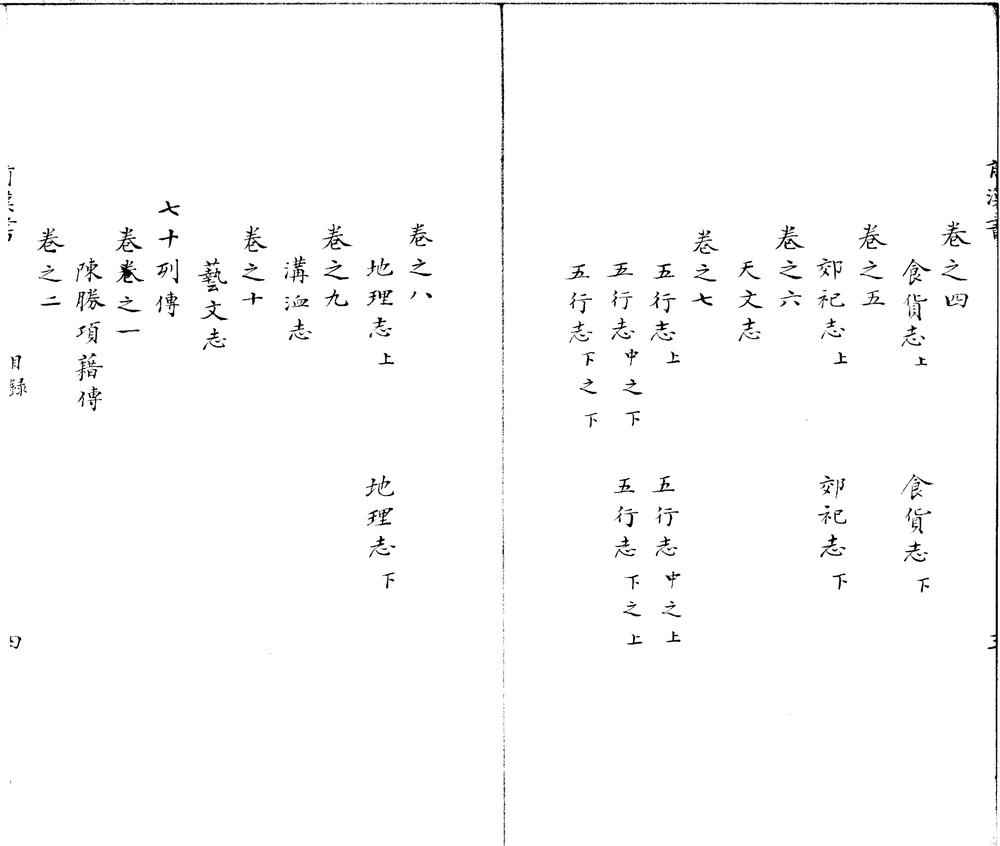 前漢書 三
卷之四
食貨志上 食貨志下
卷之五
郊祀志上 郊祀志下
卷之六
天文志
卷之七
五行志上 五行志中之上
五行志中之下 五行志下之上
五行志下之下
卷之八
地理志上 地理志下
卷之九
溝洫志
卷之十
藝文志
七十列傳
卷卷之一
陳勝項籍傳
卷之二
前漢書 目錄 四